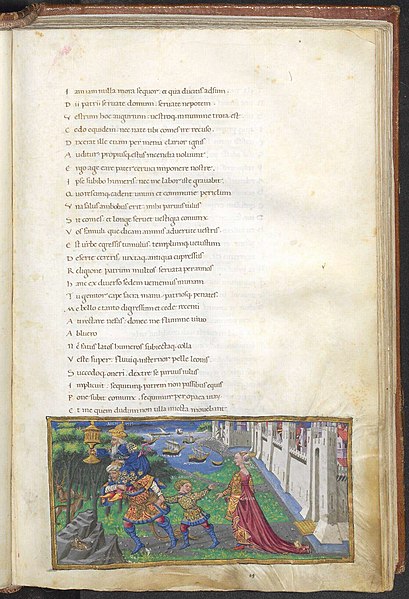 I am iam nulla mora sequor. et qua ducitis adsum.
D ii patrii seruate domum: seruate nepotem
V estrum hoc augurium: uestroq; in numine troia est
C edo equidem: nec nate tibi comes ire recuso.
D ixerat ille et iam per menia clarior ignis
A uditur propiusq; estus incendia uoluunt
E rgo age care pater ceruici imponere nostre
I pse subibo humeris: nec me labor iste grauabit
Q uo res cumq; cadent unum et commune periclum
V na salus ambobus erit: mihi paruus iulus
S it comes: et longe seruet uestigia coniunx
V os famuli que dicam animis aduertite uestris
E st urbe egressis tumulus templumq; uetustum
D eserte cereris: iuxtaq; antiqua cupressus
R eligione patrum multos seruata per annos
H anc ex diuerso sedem ueniemus in unam
T u genitor cape sacra manu: patriosq; penates
M e bello e tanto digressum et cede recenti
A ttrectare nefas: donec me flumine uiuo
A bluero
H ec fatus latos humeros subiectaq; colla
V este super. fuluiq; insternor pelle leonis
S uccedoq; oneri. dextre se paruus iulus
I mplicuit. sequiturq; patrem non passibus equis
P one subit coniunx. per opaca
E t me quem dudum non ulla mouebant